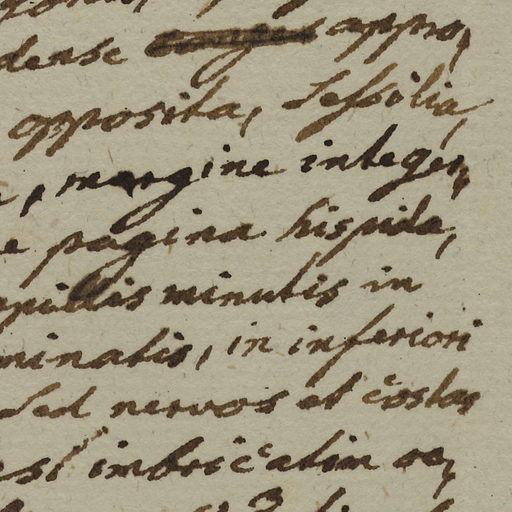 dense appro,
opposita, Sessilia,
, margine integer,
e pagina hispida,
minutis in
minatis, in inferiori
Sed nervos et costas
est imbricatim re,